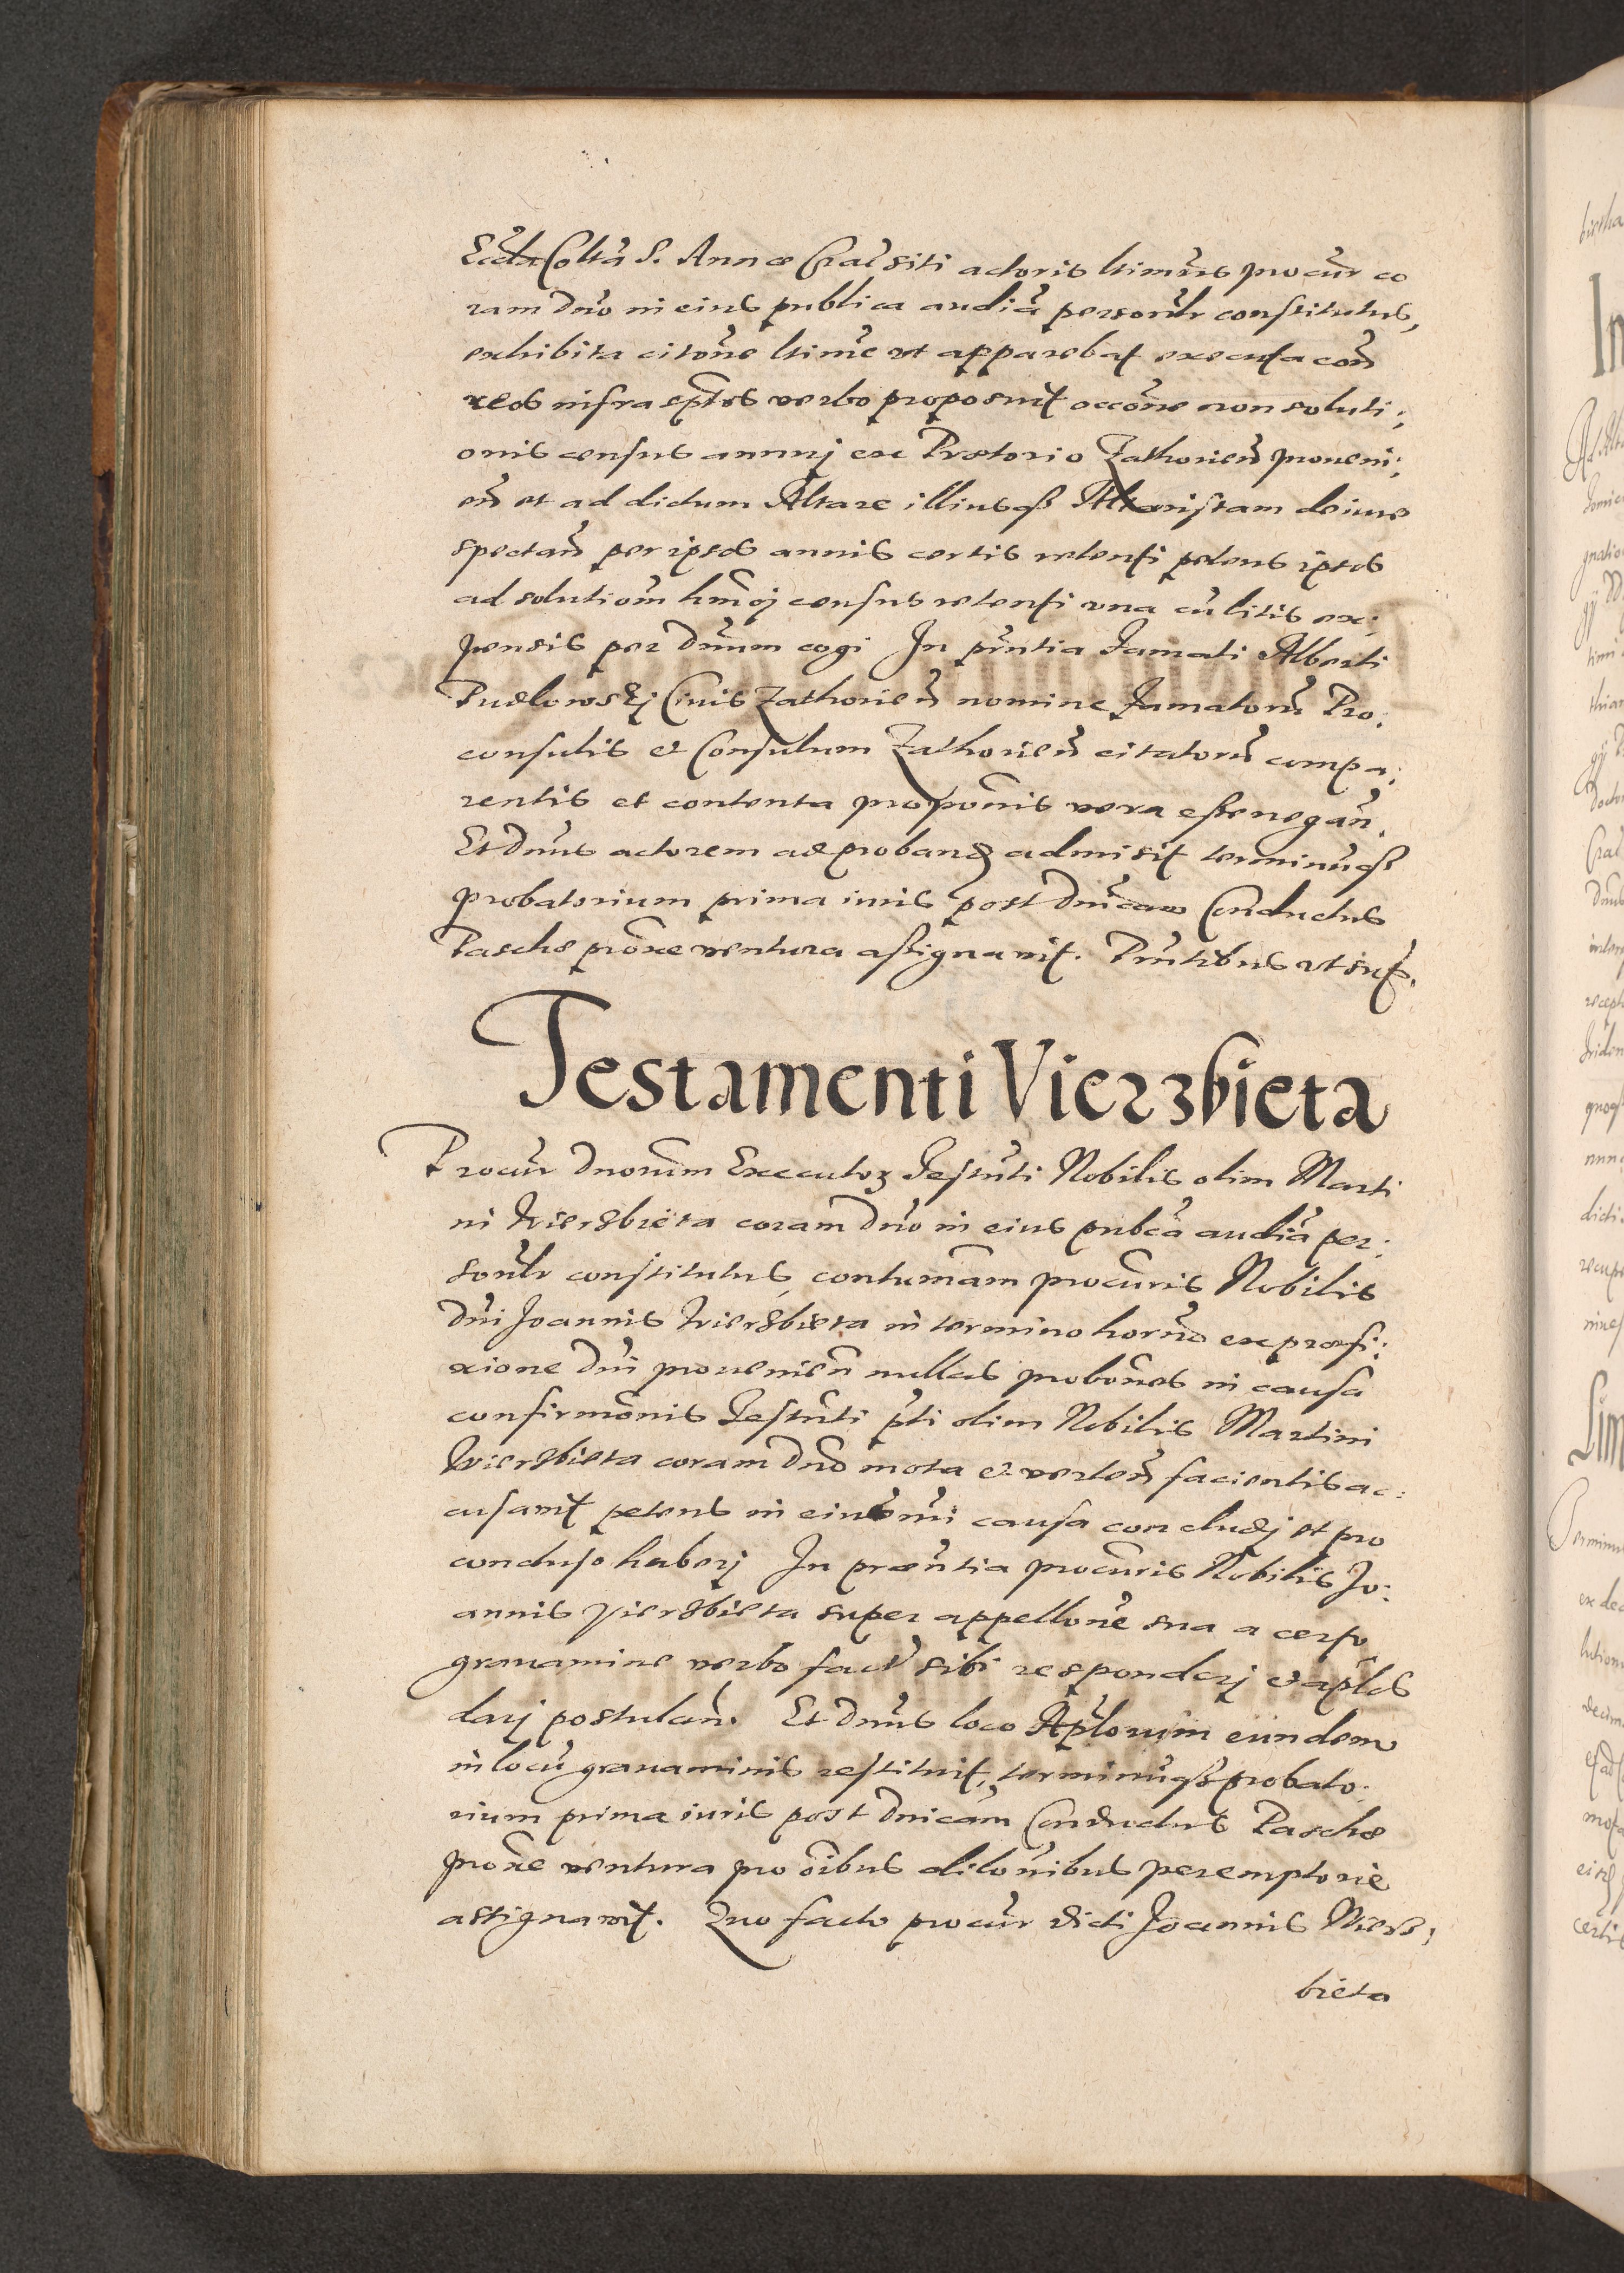 Eccla Collta S. Annæ Crac siti actoris ltimus procur co
ram Dno in eius publica audia personlr constitutus,
exhibita citone ltime ut apparebat executa con
reos infrascptos verbo proposuit occone non soluti:
onis census annuj ex Prætorio Zathorien proueni:
en et ad dictum Altare illiusqz Altaristam de iure
spectan per ipsos annis certis retenti petens ipsos
ad solutiom hmoj census retenti una cu litis ex:
pensis per Dnum cogi In pntia Famati Alberti
Pudlowskj Ciuis Zathorien nomine Famatorum Pro:
consulis et Consulum Zathorien citatorum compa:
rentis et contenta proponis vera esse negan.
Et Dnus actorem ad proband admisit terminuqz
probatorium prima iuris post Dnicam Conductus
Paschæ proxe ventura assignauit. Pntibus ut sup.
Testamenti Vierzbieta
Procur Dnorum Executoz Testnti Nobilis olim Marti
ni Wierzbieta coram Dno in eius pubca audia per:
sonlr constitutus, contumam procuris Nobilis
Dni Joannis Wierzbieta in termino horno ex præfi:
xione Dni prouenien nullas probones in causa
confirmonis Testnti pti olim Nobilis Martini
Wierzbieta coram Dno mota et verten facientis ac:
cusauit petens in eiusmi causa concludj et pro
concluso haberj In præntia procuris Nobilis Jo:
annis Vierzbieta super appellone sua a certo
grauamine verbo fact sibi responderj et aplos
darj postulan. Et Dnus loco Aplorum eundem
in locu grauaminis restituit, terminuqz probato:
rium prima iuris post Dnicam Conductus Paschæ
proxe ventura pro oibus dilonibus peremptorie
assignauit. Quo facto procur dicti Joannis Wierz:
bieta